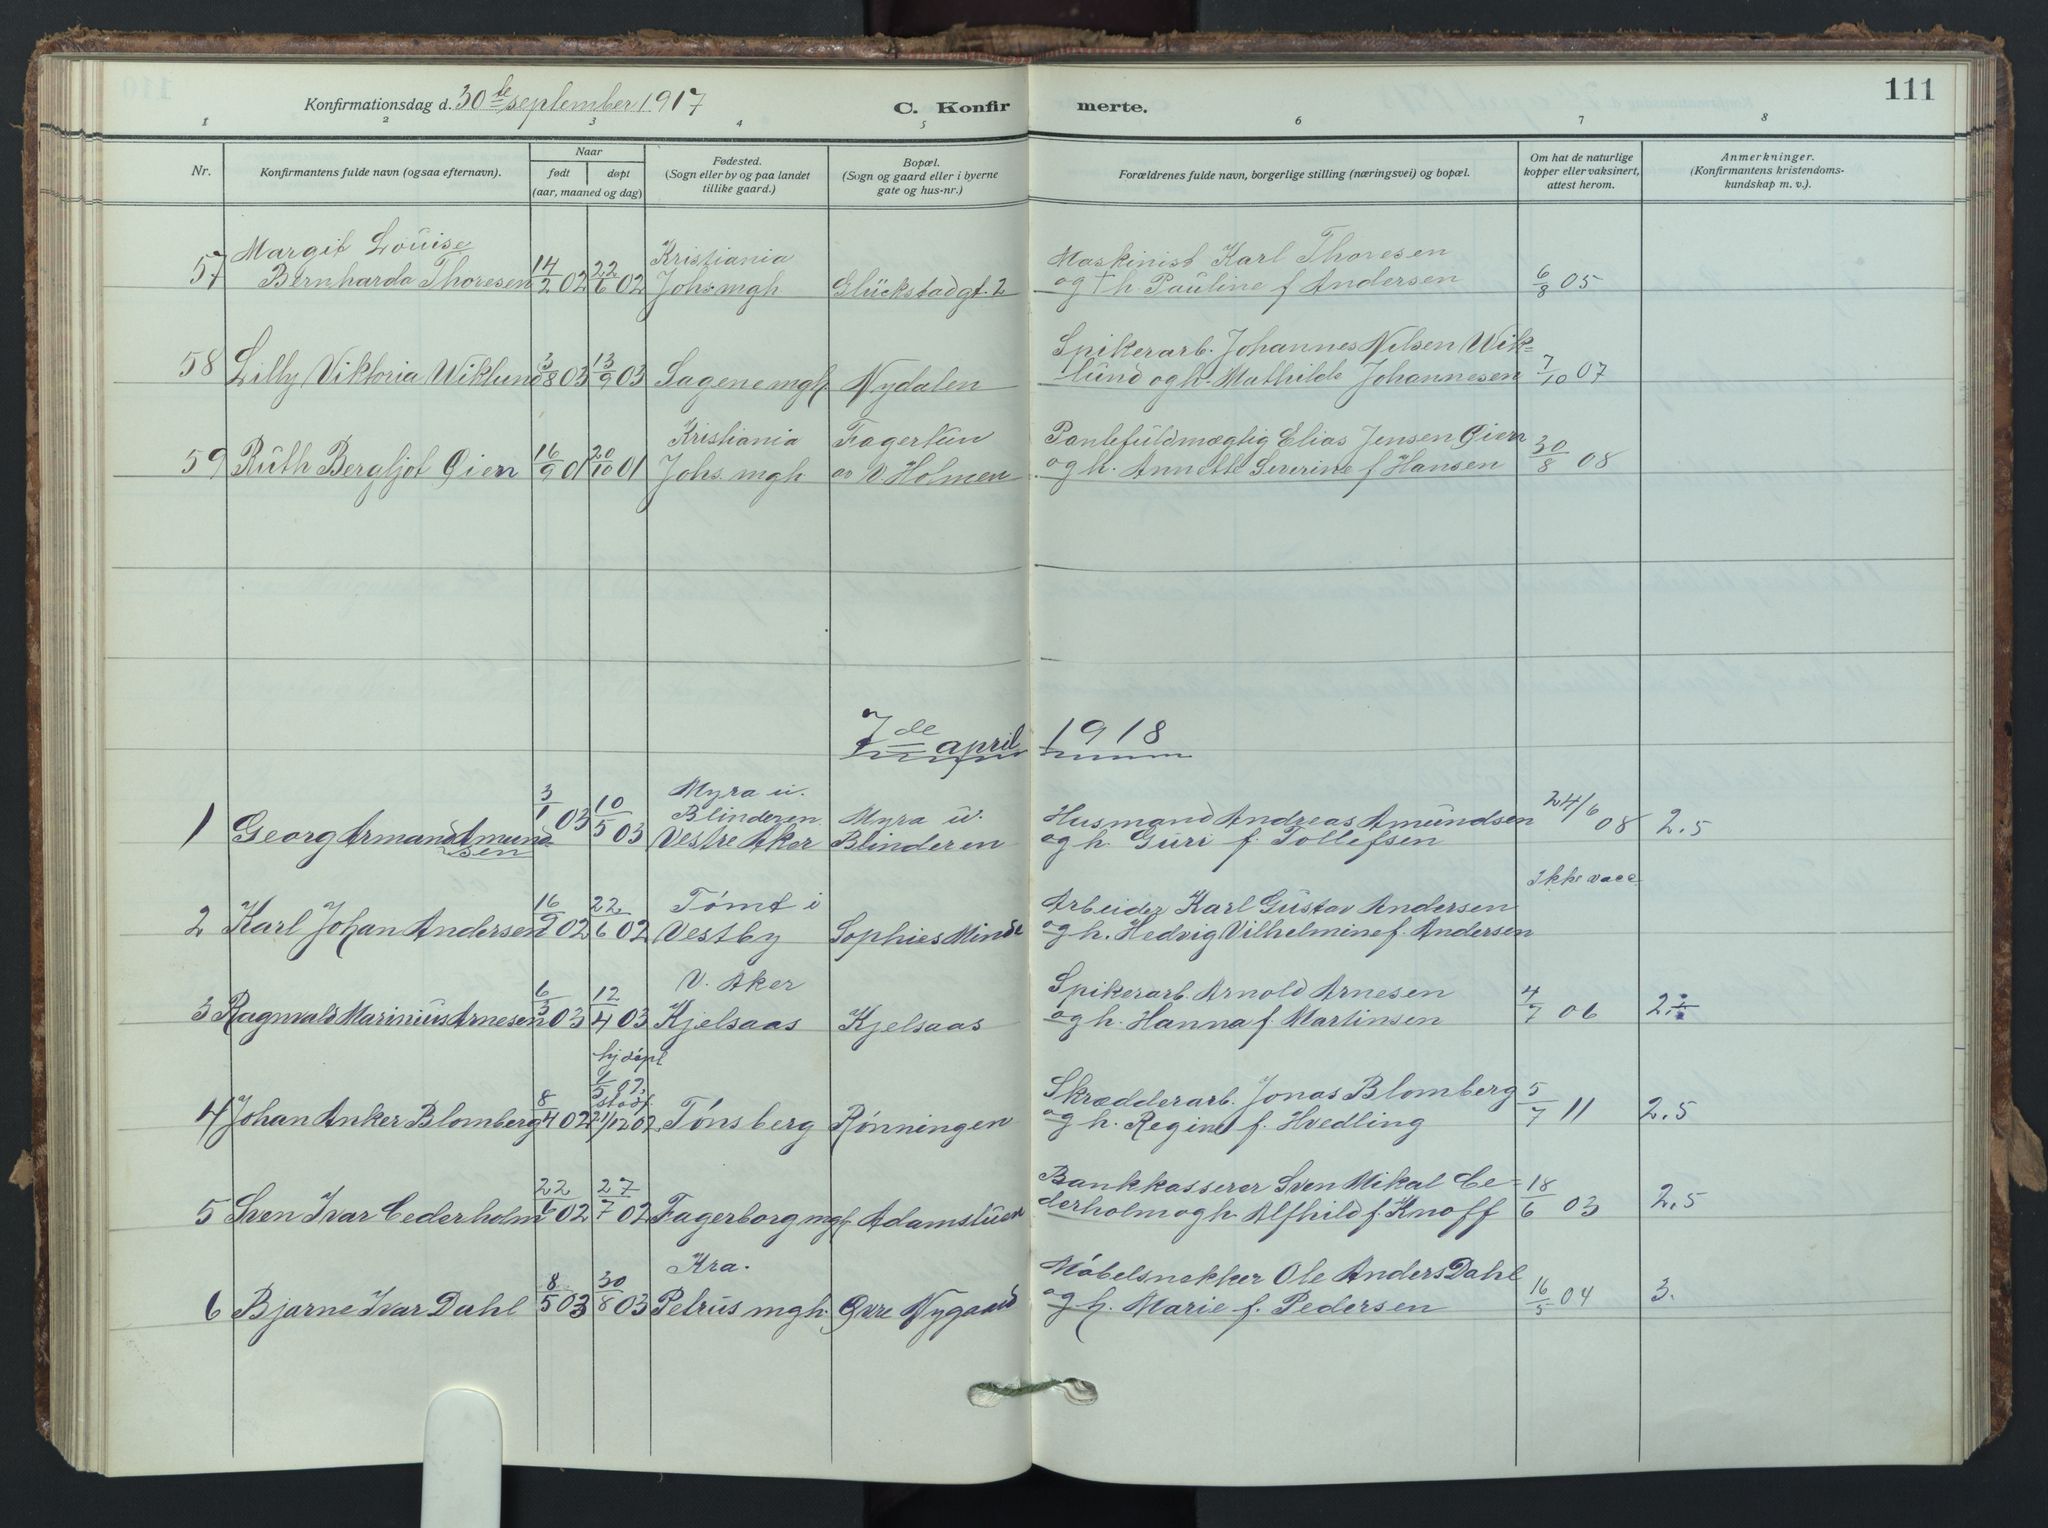 Konfirmationsdag d. 30te september 1917 C. Konfir merte. 111
1 2 3 4 5 6 7 8
Nr. Konfirmantens fulde navn (ogsaa efternavn). Naar født døpt (aar, maaned og dag) Fødested. (Sogn eller by og paa landet tillike gaard.) Bopæl. (Sogn og gaard eller i byerne gate og hus-nr.) Forældrenes fulde navn, borgerlige stilling (næringsvei) og bopæl. Om hat de naturlige kopper eller vaksinert, attest herom. Anmerkninger. (Konfirmantens kristendoms-kundskap m. v.).
57 Margit Louise
Bernharda Thoresen 14/2 02 22/6 02 Kristiania
Johs. mgh Glückstadgt. 2 Maskinist Karl Thoresen
og † h. Pauline f Andersen 6/8 05
58 Lilly Viktoria Wiklund 3/8 03 13/9 03 Sagene mgh Nydalen Spikerarb. Johannes Nilsen Wik-
lund og h. Mathilde Johannesen 7/10 07
59 Ruth Bergljot Øien 16/9 01 20/10 01 Kristiania
Johs. mgh Fagertun
av V. Holmen Pantefuldmægtig Elias Jensen Øien
og h. Annette Severine f Hansen 30/8 08
7de april 1918
1 Georg Armand Amund-
sen 3/1 03 10/5 03 Myra u.
Blinderen
Vestre Aker Myra u.
Blinderen Husmand Andreas Amundsen
og h. Guri f. Tollefsen 24/6 08 2.5
2 Karl Johan Andersen 16/9 02 22/6 02 Tømt i
Vestby Sophies Minde Arbeider Karl Gustav Andersen
og h. Hedvig Vilhelmine f. Andersen Ikke vacc
3 Ragnvald Marinius Arnesen 6/3 03 12/4 03 V. Aker
Kjelsaas Kjelsaas Spikerarb. Arnold Arnesen
og h. Hanna f. Martinsen 4/7 06 2.
4 Johan Anker Blomberg 8/4 02 hj døpt
stadf
21/12 02 Tønsberg Rønningen Skrædderarb. Jonas Blomberg
og h. Regine f. Hvedling 5/7 11 2.5
5 Sven Ivar Cederholm 22/6 02 27/7 02 Fagerborg mgh Adamstuen Bankkasserer Sven Mikal Ce-
derholm og h. Alfhild f. Knoff 18/6 03 2.5
6 Bjarne Ivar Dahl 8/5 03 30/8 03 Kra.
Petrus mgh. Øvre Nygaard Møbelsnekker Ole Anders Dahl
og h. Marie f. Pedersen 16/5 04 3.